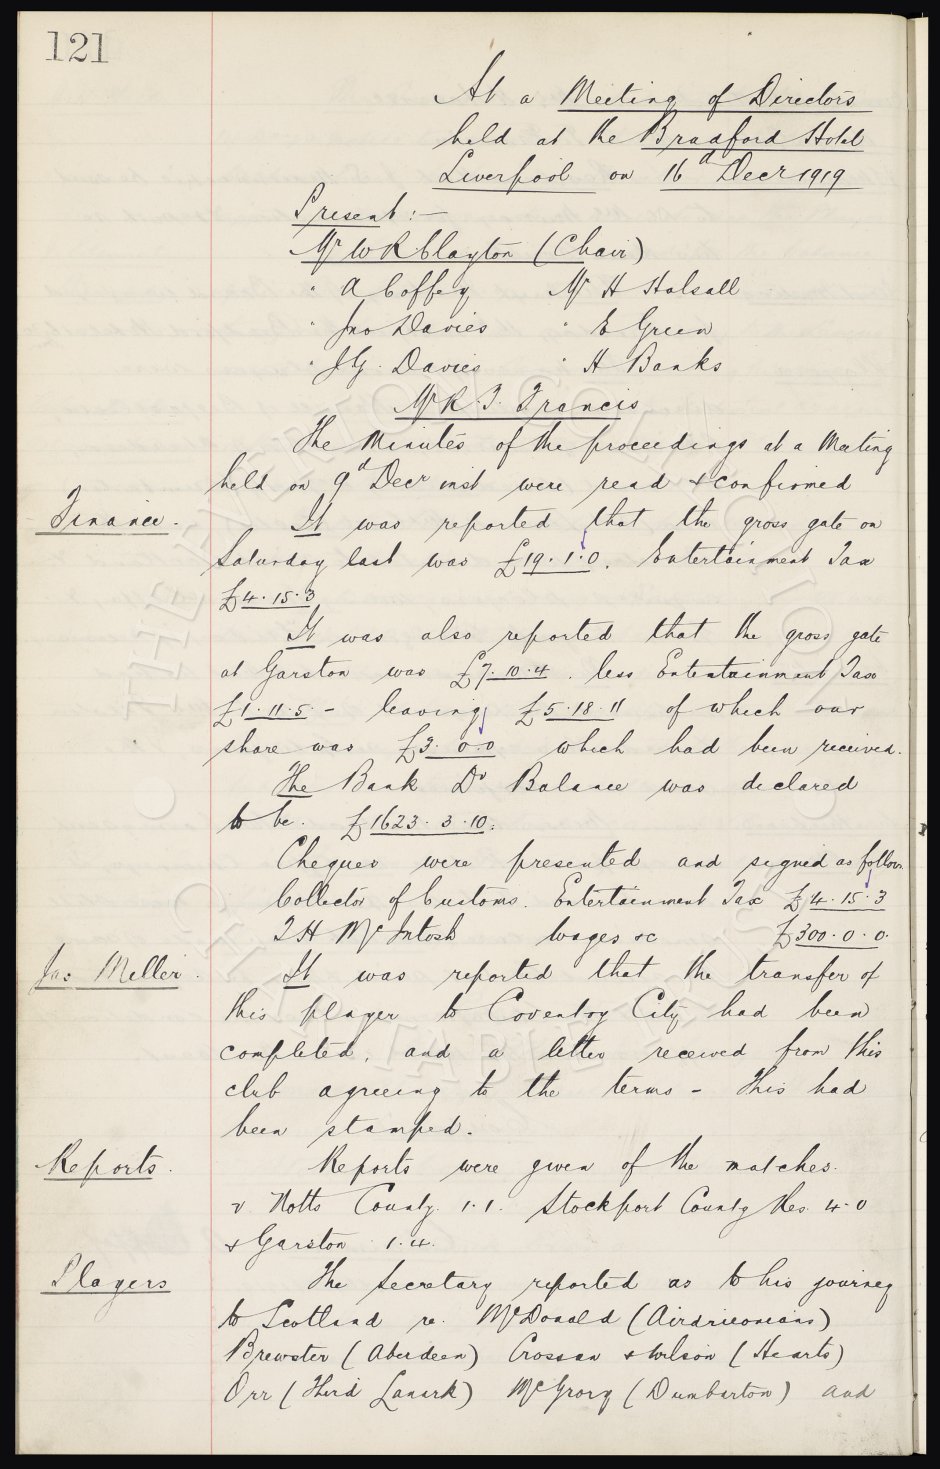 121
At a Meeting of Directors
held at the Bradford Hotel
Liverpool on 16d Decr 1919
Present :-
Mr W R Clayton (Chair)
" A Coffey Mr H Halsall
" Jno Davies " E Green
" J G. Davies " H Banks
Mr R. T. Francis
The Minutes of the proceedings at a Meeting
held on 9d Decr inst were read & confirmed
Finance.
It was reported that the gross gate on
Saturday last was £19.1.0. Entertainment Tax
£4.15.3
It was also reported that the gross gate
at Garston was £7.10.4. less Entertainment Tax
£1.11.5 - leaving £5.18.11 of which our
share was £3.0.0 which had been received.
The Bank Dr Balance was declared
to be. £1623.3.10.
Cheques were presented and signed as follows.
Collector of Customs. Entertainment Tax £4.15.3
T H McIntosh Wages &c £300.0.0.
Jas Meller.
It was reported that the transfer of
this player to Coventry City had been
completed, and a letter received from this
club agreeing to the terms - This had
been stamped.
Reports.
Reports were given of the matches.
v Notts County. 1.1. Stockport County Res. 4-0
& Garston 1.4.
Players
The Secretary reported as to his journey
to Scotland re. McDonald (Airdrieonians)
Brewster (Aberdeen) Crossan & Wilson (Hearts)
Orr (Third Lanark) McGrory (Dumbarton) and